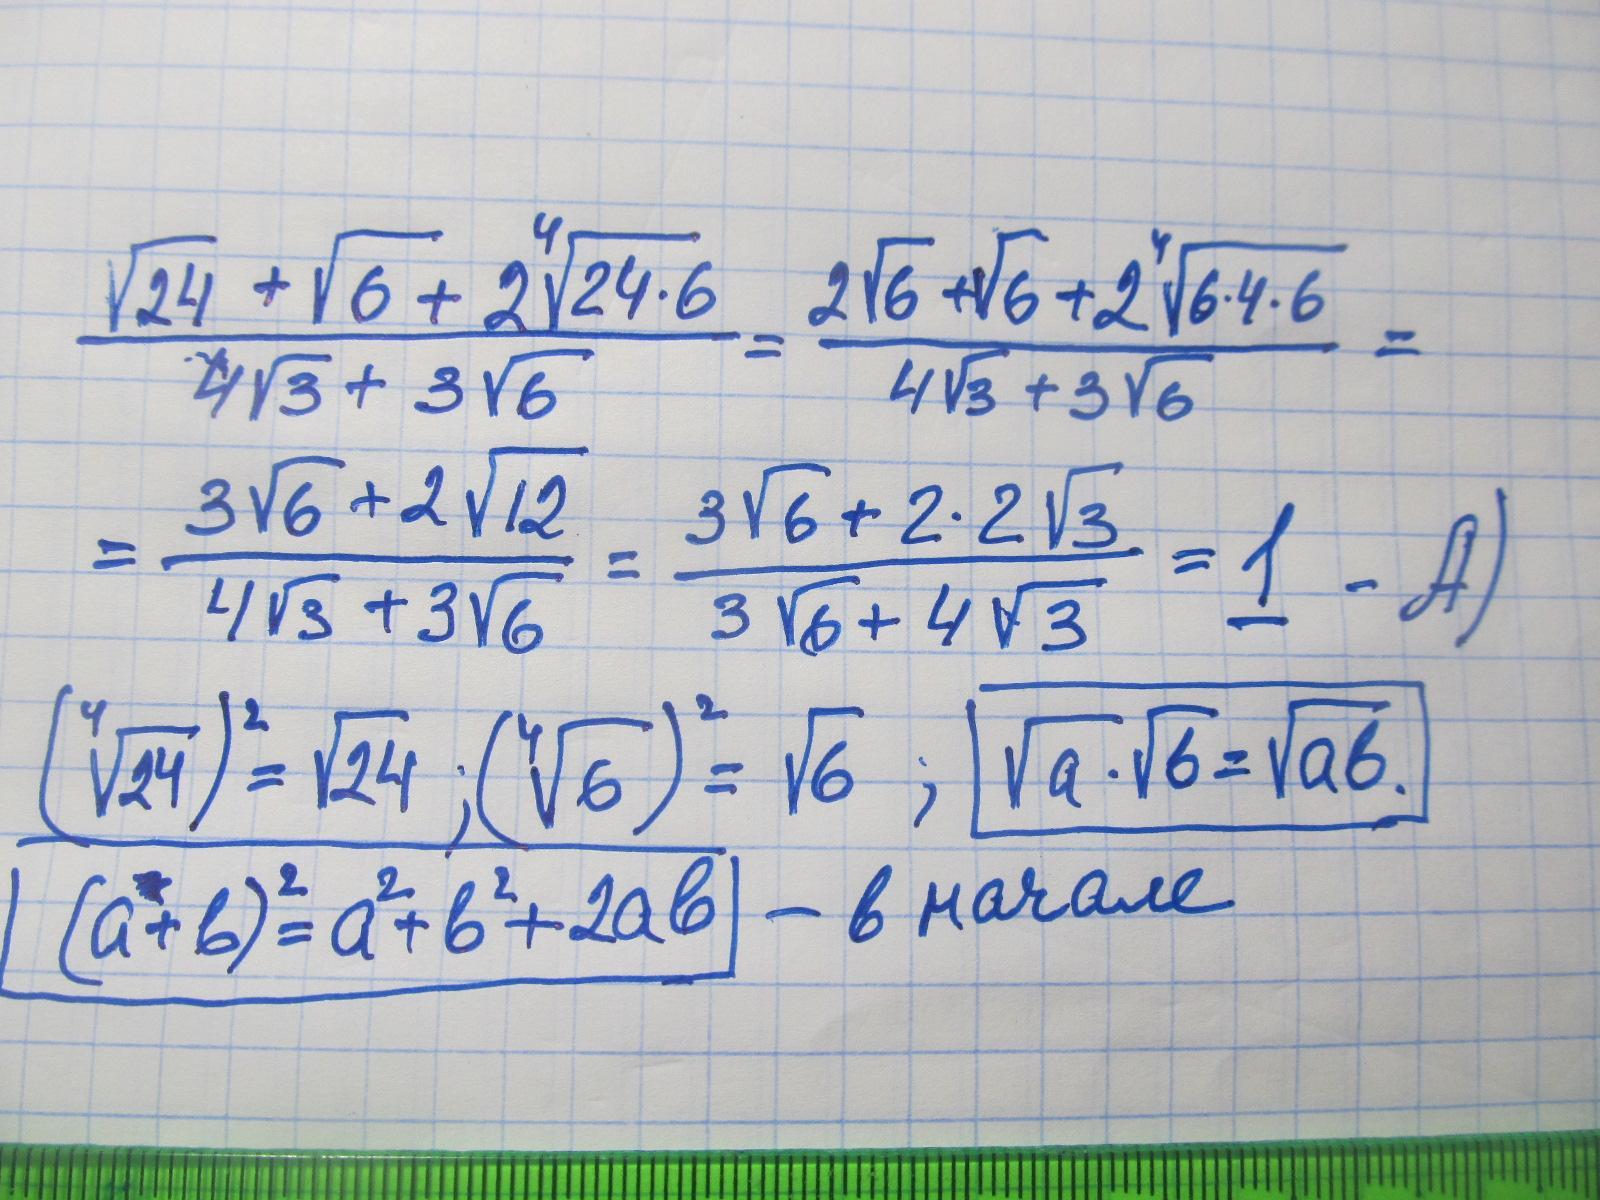 (√24 + √6 + 2⁴√(24·6)) / (4√3 + 3√6) = (2√6 + √6 + 2⁴√(6·4·6)) / (4√3 + 3√6) =
= (3√6 + 2√12) / (4√3 + 3√6) = (3√6 + 2·2√3) / (3√6 + 4√3) = 1 - А)
(⁴√24)² = √24 ; (⁴√6)² = √6 ; √a · √b = √ab.
(a + b)² = a² + b² + 2ab – в начале